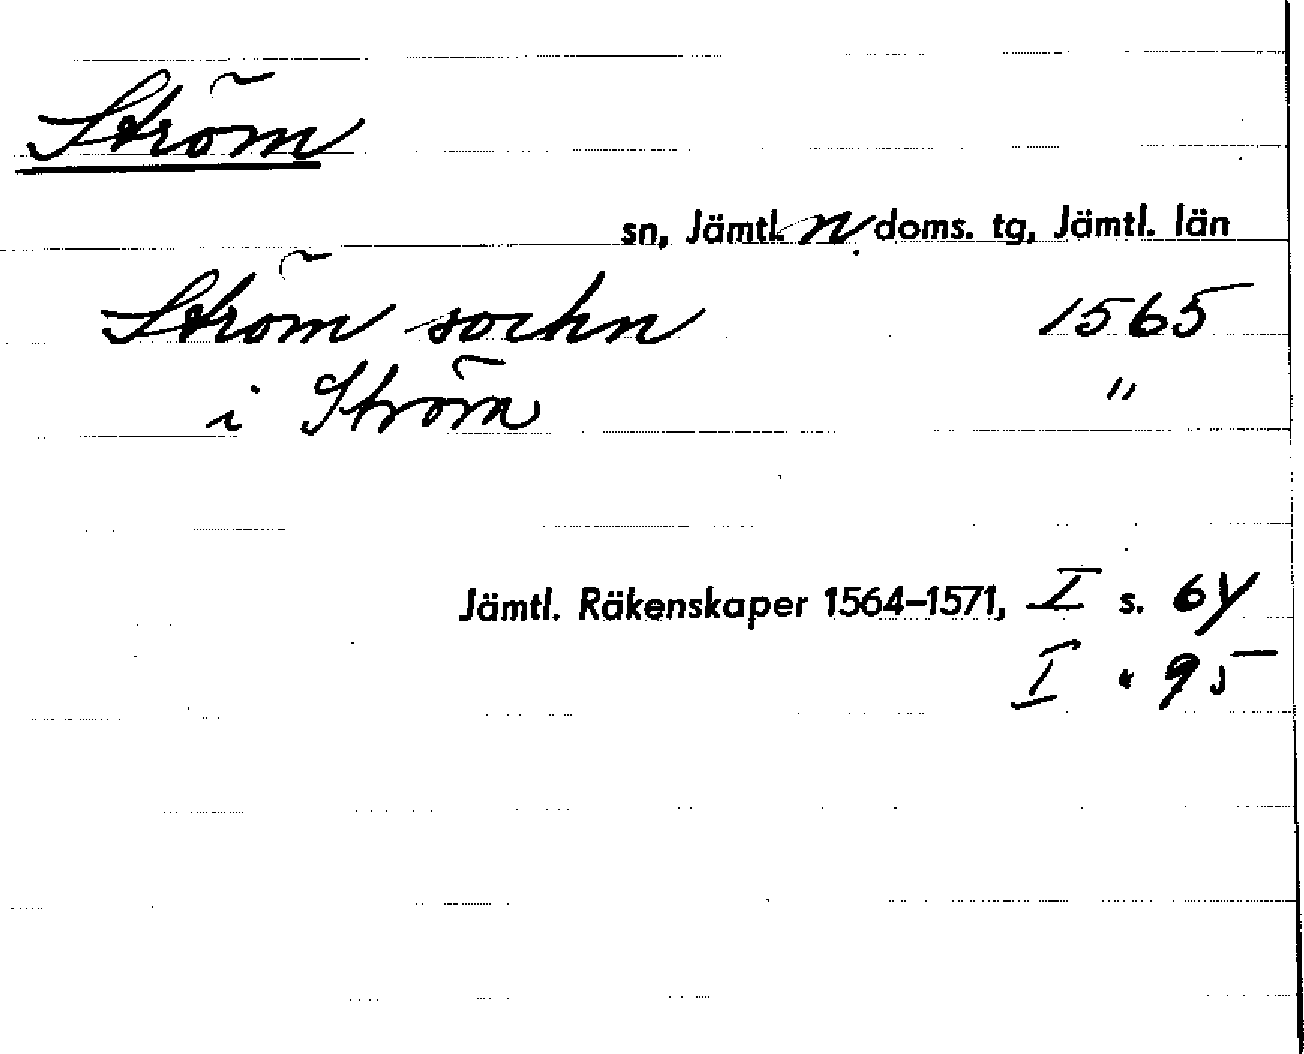 Ström
sn, Jämtl. n. doms. tg, Jämtl. län
Ström sochn 1565
i Ström "
Jämtl. Räkenskaper 1564–1571, I s. 64
I " 95